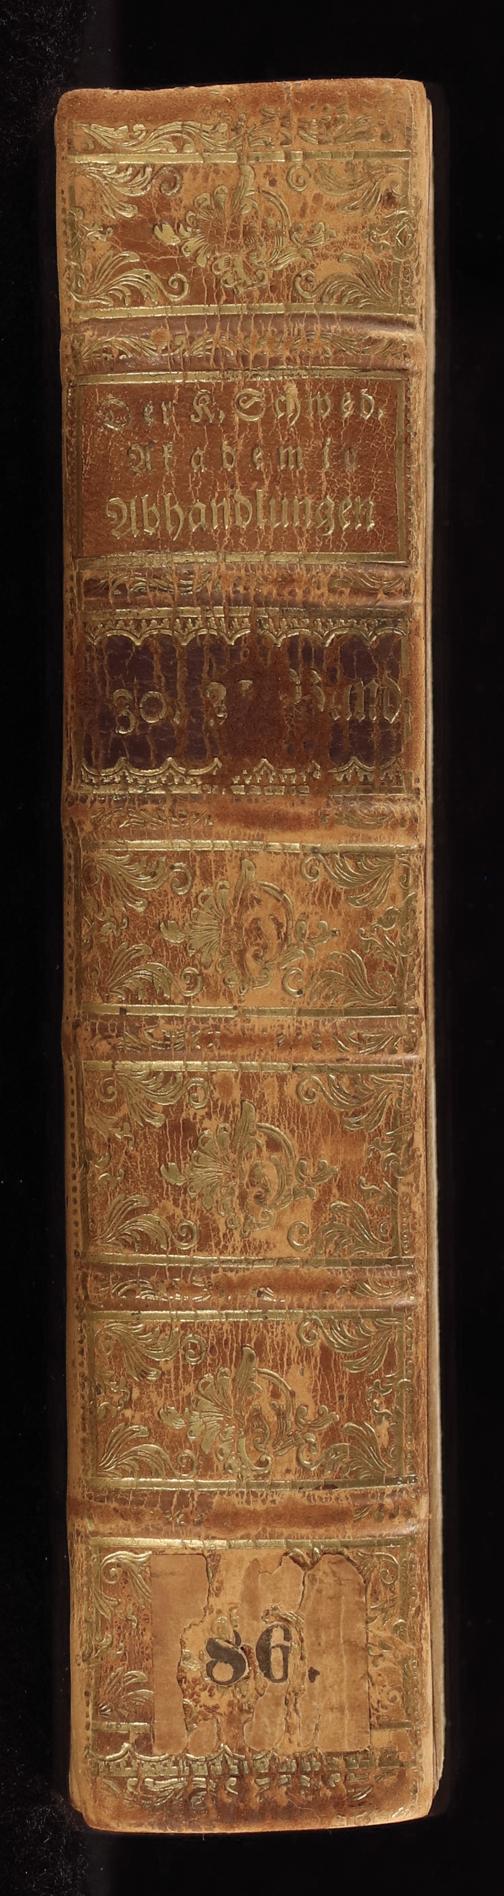 Der K. Schwed.
Akademie
Abhandlungen
30. Band.
86.